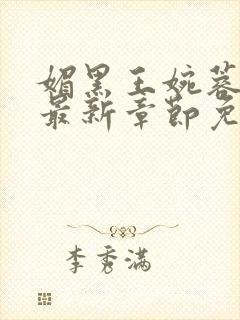 媚黑王婉蓉
最新章节免
李秀满